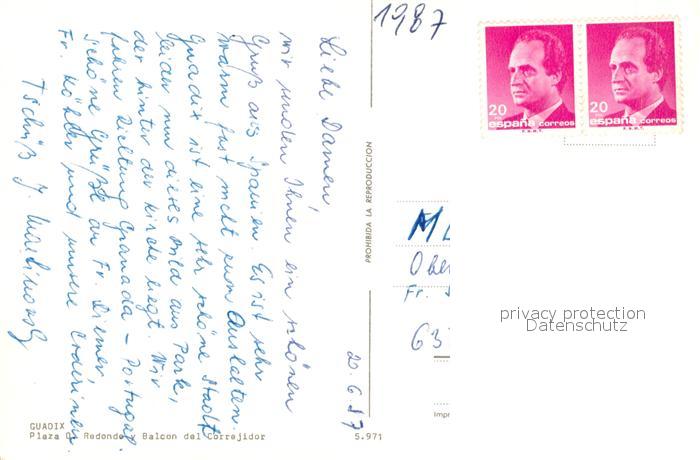 1987
20 20
españa correos españa correos
F.N.M.T. F.N.M.T.
20.6.87
Liebe Damen,
wir senden Ihnen ein schönen
Gruß aus Spanien. Es ist sehr
warm fast nicht zum Aushalten.
Guadix ist eine sehr schöne Stadt
leider nur dieses Bild aus Park,
der hinter der Kirche liegt. Wir
fahren Richtung Granada - Portugal
Schöne Grüße an Fr. Diemer,
Fr. Köhler und unsere
Tschüß J.
PROHIBIDA LA REPRODUCCION
Ober
Fr.
63
privacy protection
Datenschutz
Impr
GUADIX
Plaza Redonde, Balcon del Correjidor
5.971